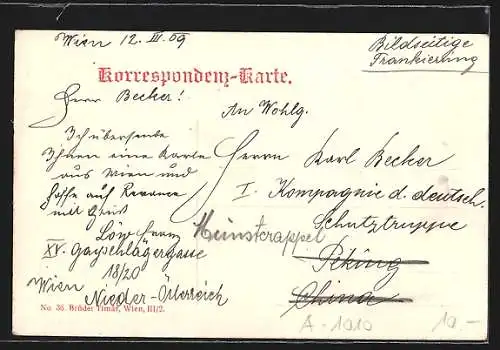 Wien 12. III. 09
Bildseitige
Frankierung
Korrespondenz-Karte.
Herr Becker!
An Wohlg.
Ich übersende
Ihnen eine Karte
aus Wien und
hoffe auf Revance
mit Gruß
Löw Franz
XV. Gayschlägergasse
18/20
Wien
Nieder-Österreich
Herrn Karl Becker
I. Kompagnie d. deutsch.
Schutztruppe
Münsterappel
Peking
China
No. 36. Brüder Timár, Wien, III/2.
A-1010
10.-